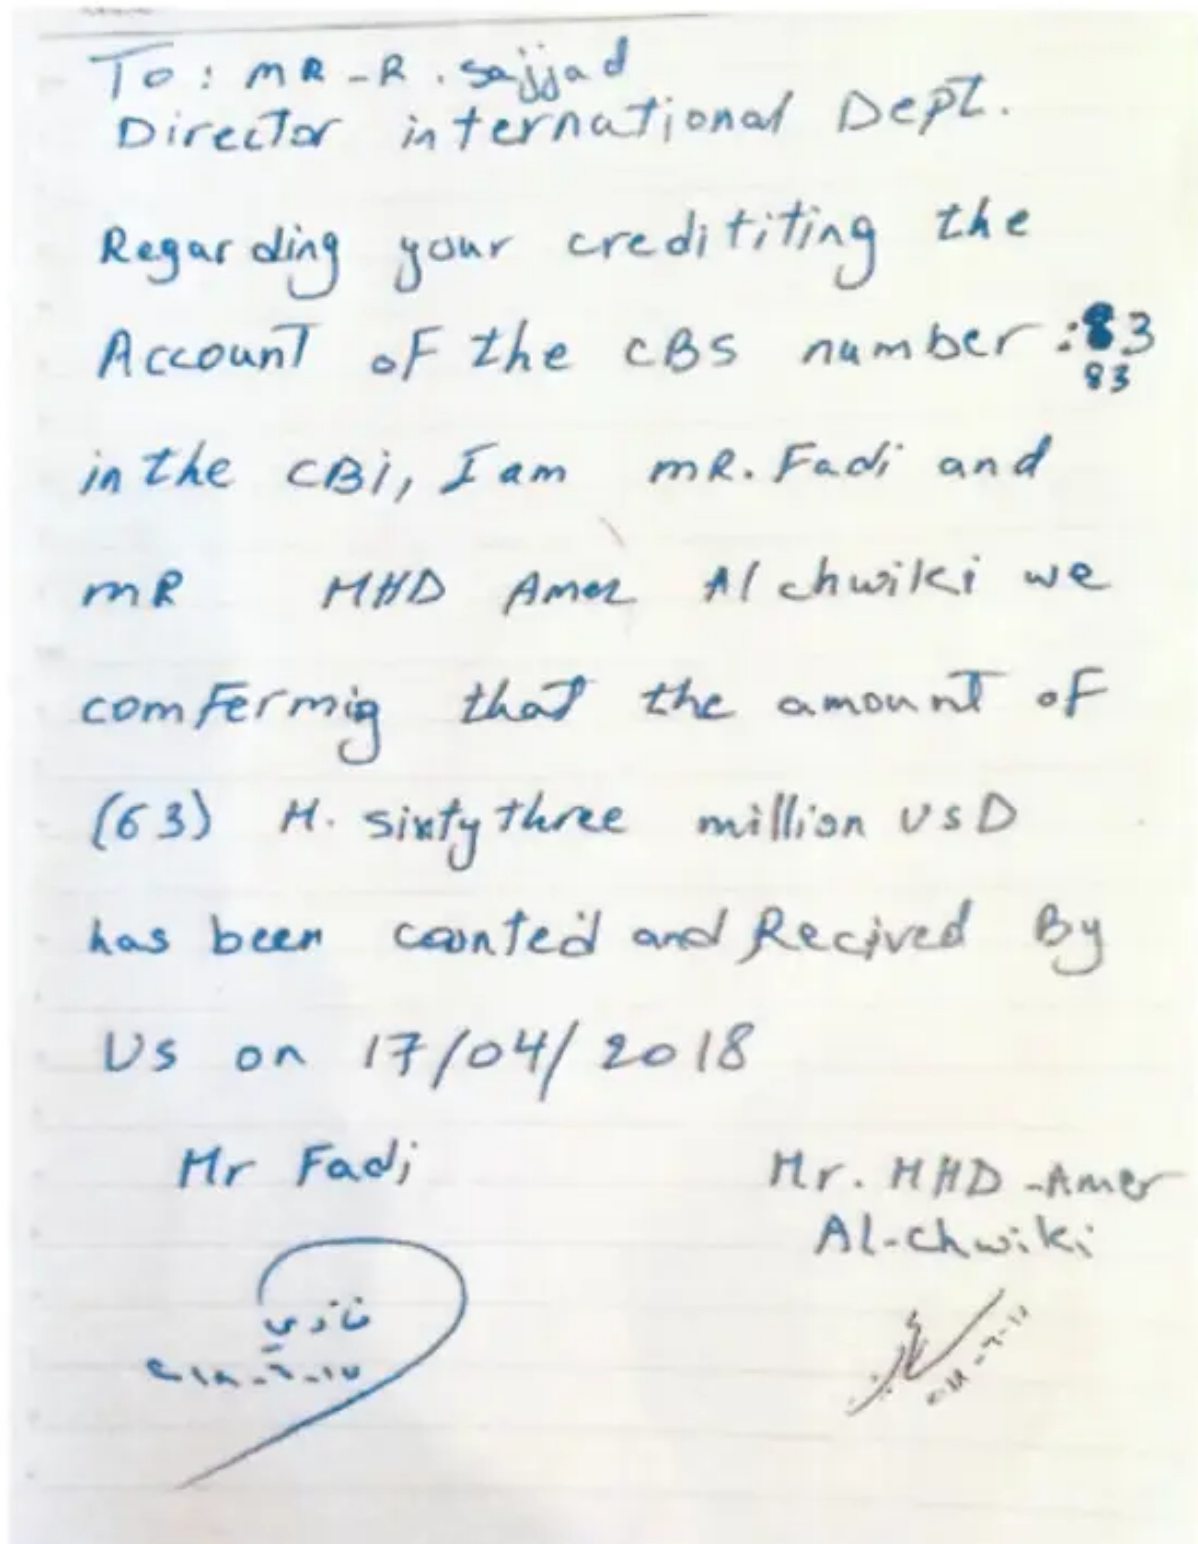 To: MR-R. Sajjad
Director international Dept.
Regarding your credititing the
Account of the CBS number:83
83
in the CBi, I am mR. Fadi and
mR MHD Amer Alchwiki we
comfermig that the amount of
(63) M. sixty three million USD
has been counted and Recived By
Us on 17/04/2018
Mr Fadi
Mr. MHD-Amer
Al-chwiki
فادي